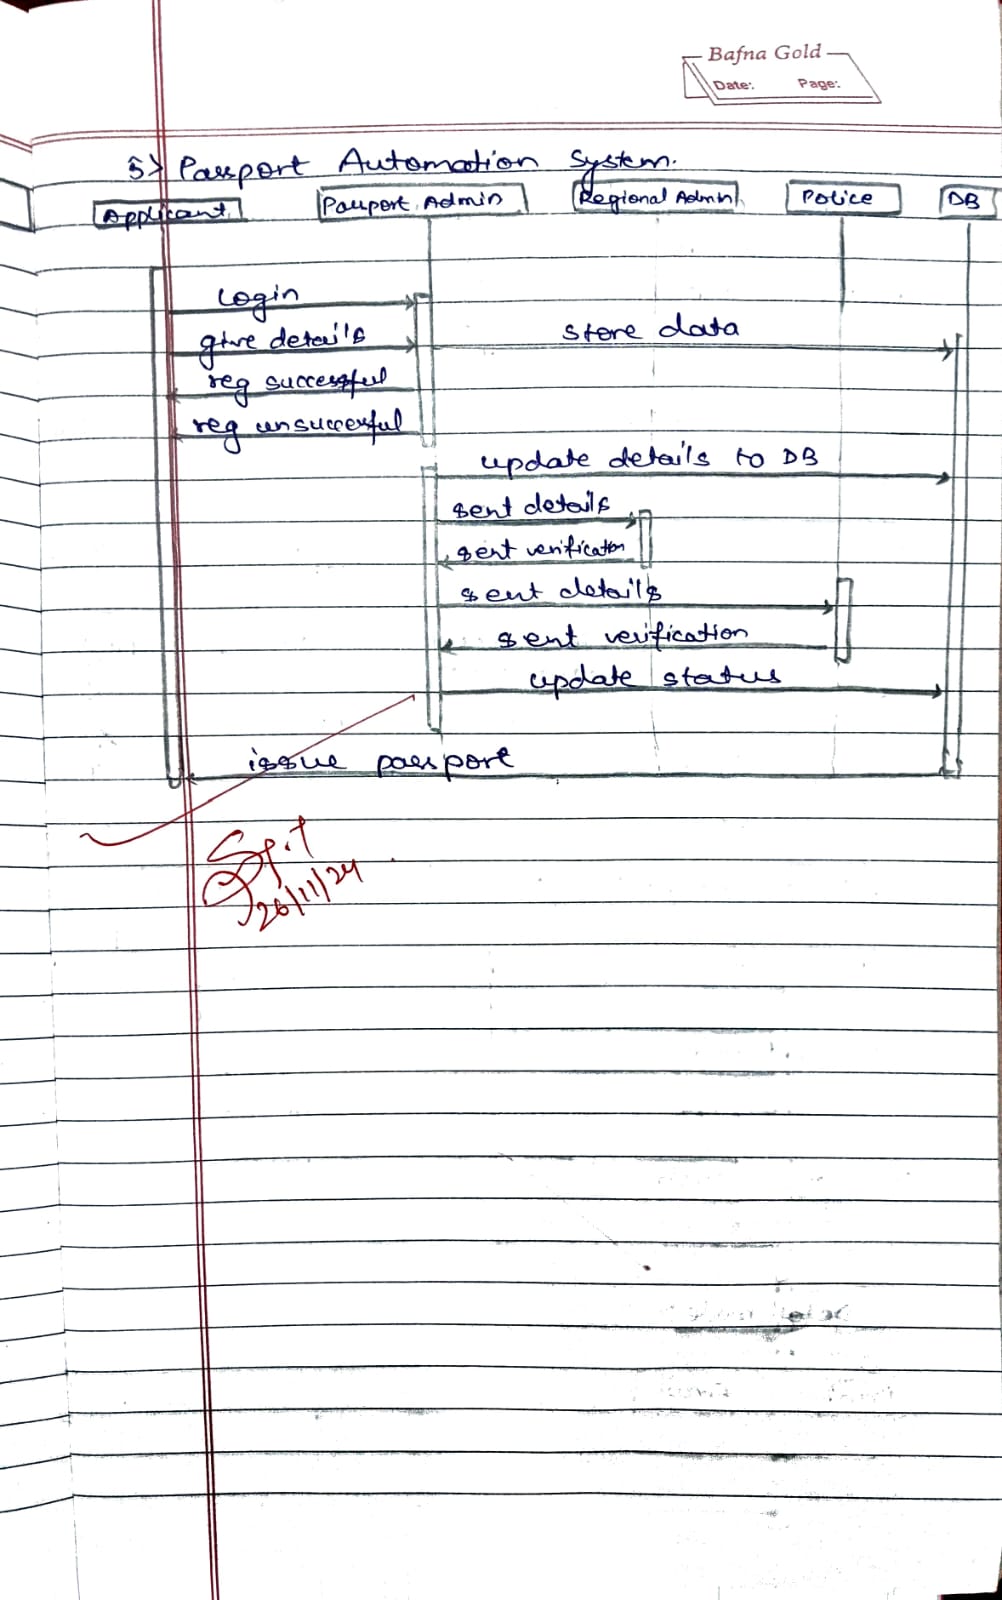 Bafna Gold
Date: Page:
5> Passport Automation System.
Applicant Passport Admin Regional Admin Police DB
login
give details store data
reg successful
reg unsuccesful
update details to DB
sent details
sent verification
sent details
sent verification
update status
issue passport
26/11/24